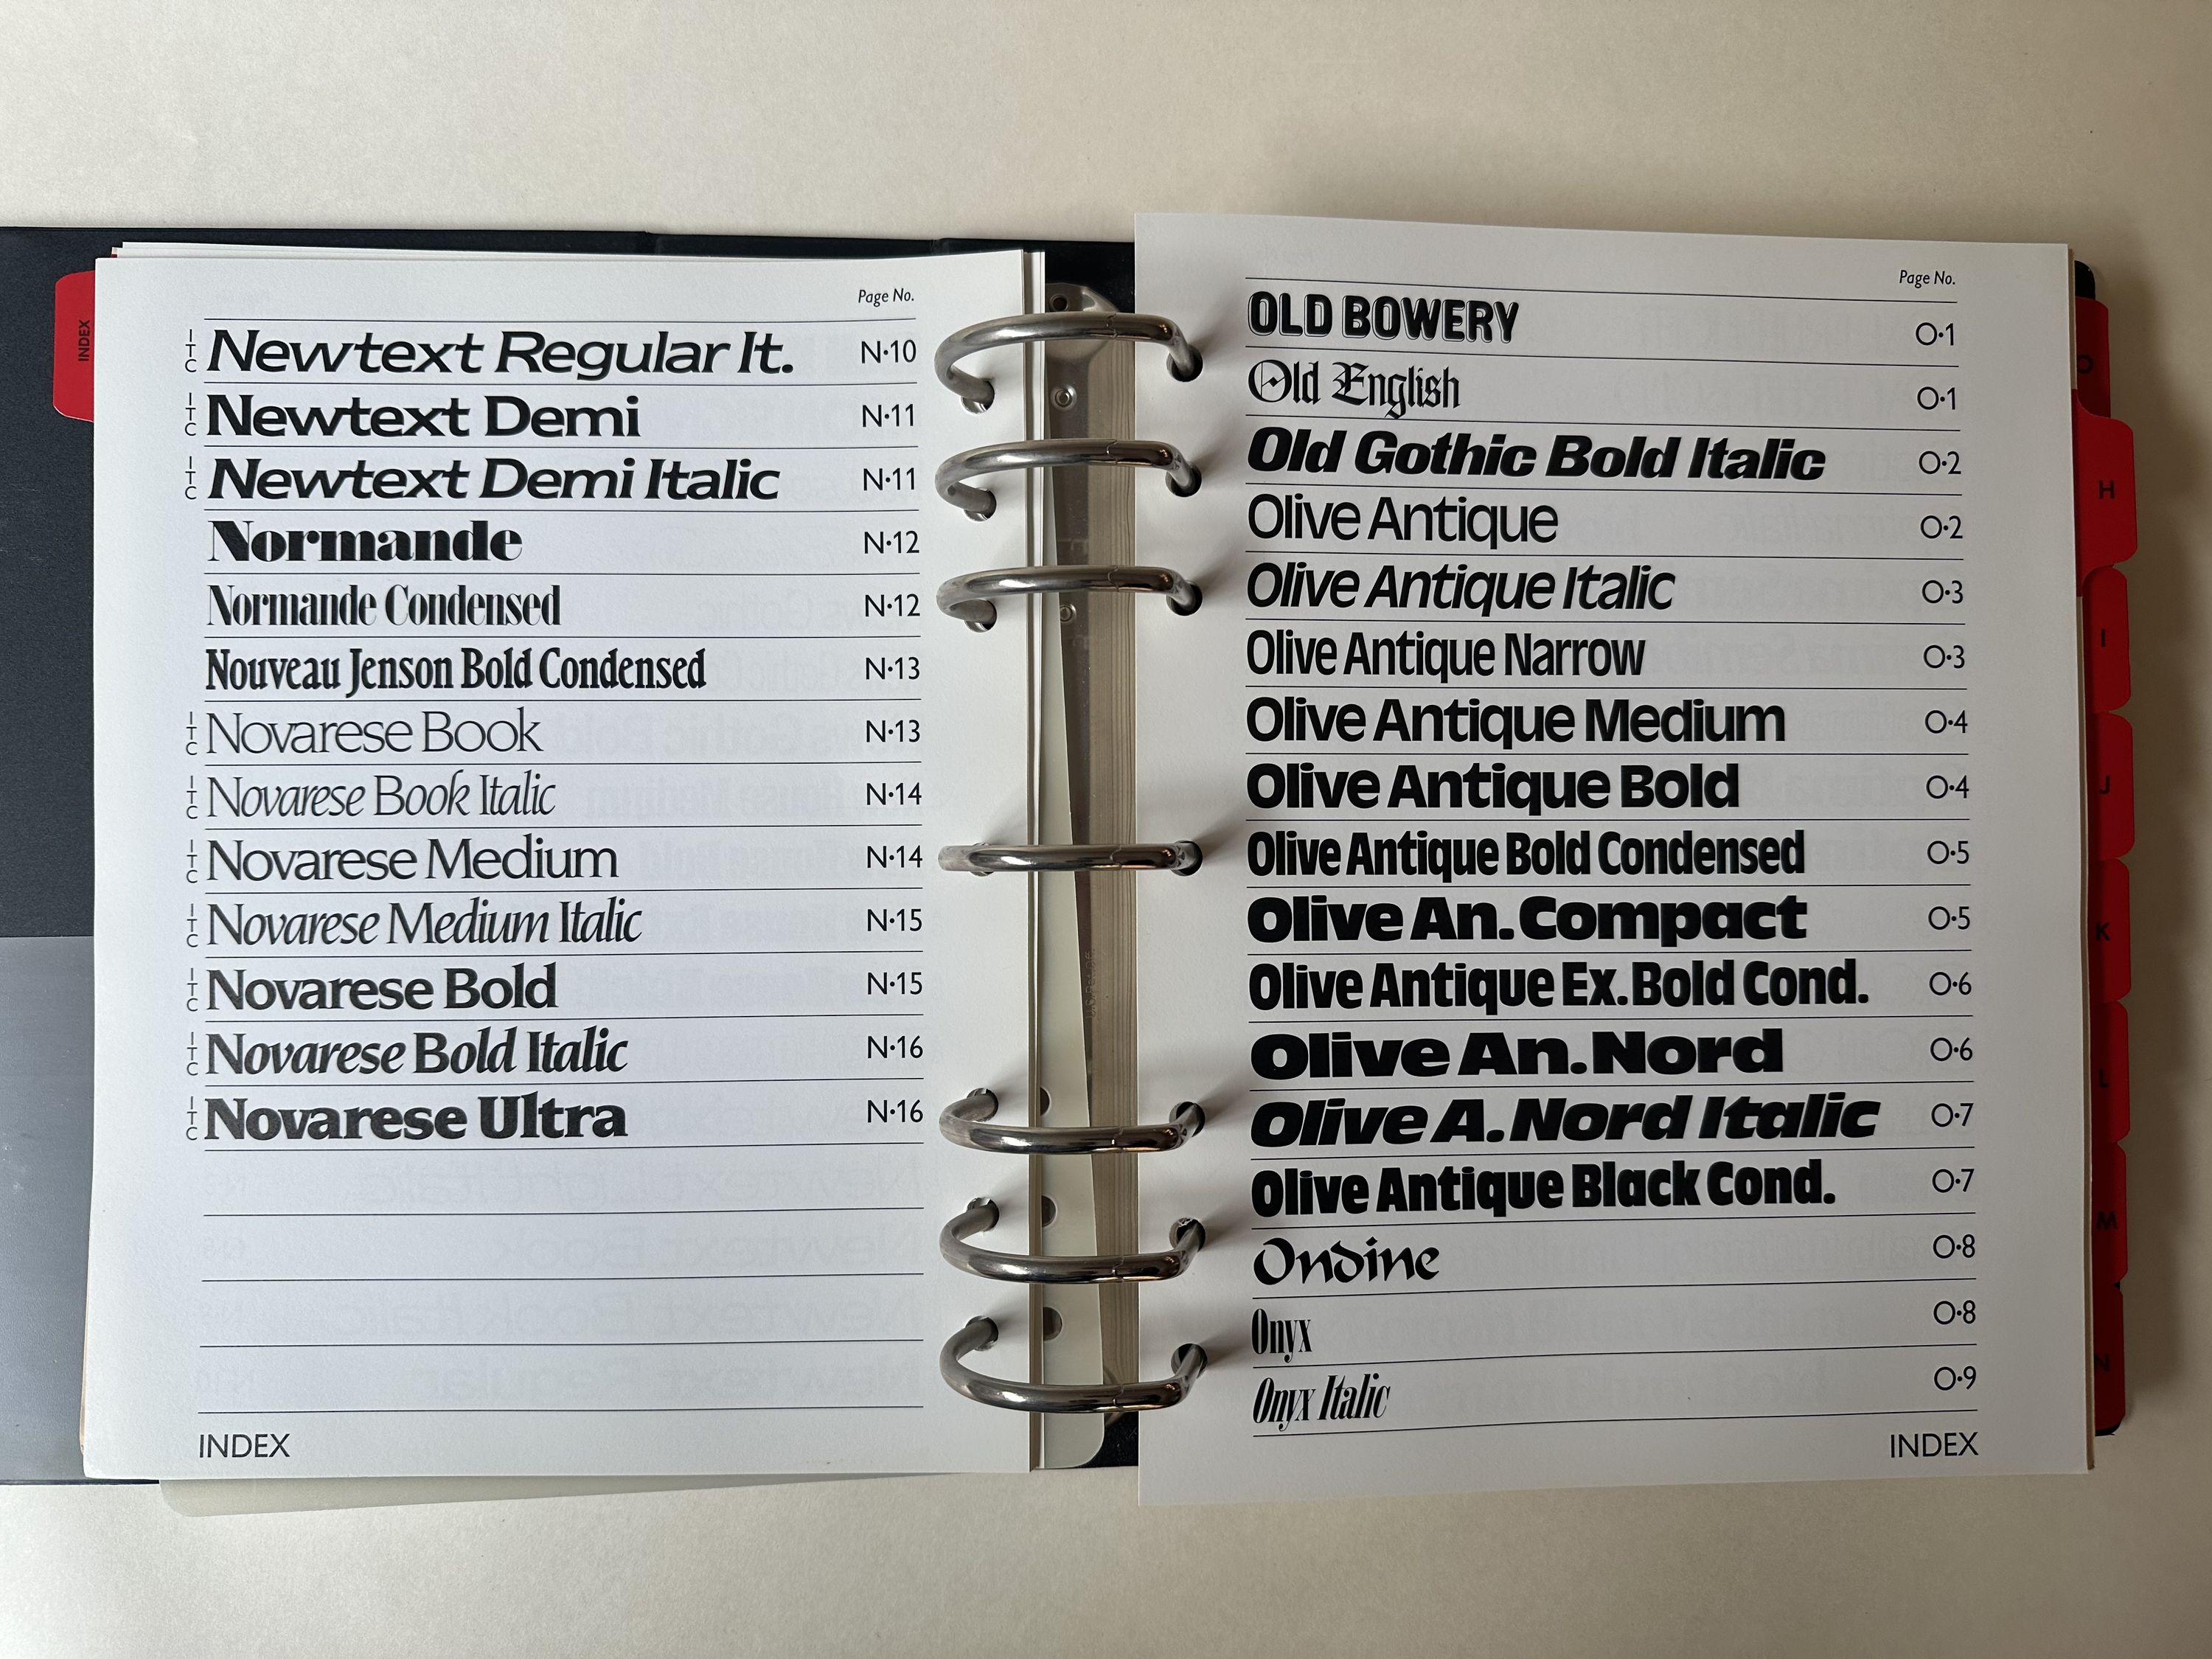 Page No.
ITC Newtext Regular It. N·10
ITC Newtext Demi N·11
ITC Newtext Demi Italic N·11
Normande N·12
Normande Condensed N·12
Nouveau Jenson Bold Condensed N·13
ITC Novarese Book N·13
ITC Novarese Book Italic N·14
ITC Novarese Medium N·14
ITC Novarese Medium Italic N·15
ITC Novarese Bold N·15
ITC Novarese Bold Italic N·16
ITC Novarese Ultra N·16
INDEX
INDEX
Page No.
OLD BOWERY O·1
Old English O·1
Old Gothic Bold Italic O·2
Olive Antique O·2
Olive Antique Italic O·3
Olive Antique Narrow O·3
Olive Antique Medium O·4
Olive Antique Bold O·4
Olive Antique Bold Condensed O·5
Olive An. Compact O·5
Olive Antique Ex. Bold Cond. O·6
Olive An. Nord O·6
Olive A. Nord Italic O·7
Olive Antique Black Cond. O·7
Ondine O·8
Onyx O·8
Onyx Italic O·9
INDEX
H
I
J
K
L
M
N